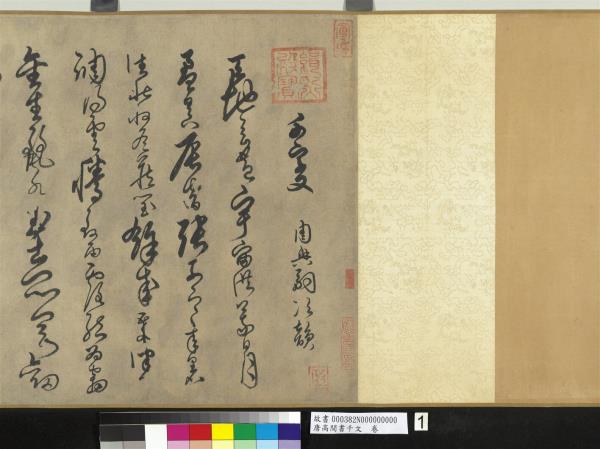 千字文 周興嗣次韻
天地玄黃宇宙洪荒日月
盈昃辰宿列張寒來暑
往秋收冬藏閏餘成歲律
調陽雲騰致雨露結為霜
金生麗水玉出崑岡劍
故書 000382N000000000
唐高閑書千文 卷
1